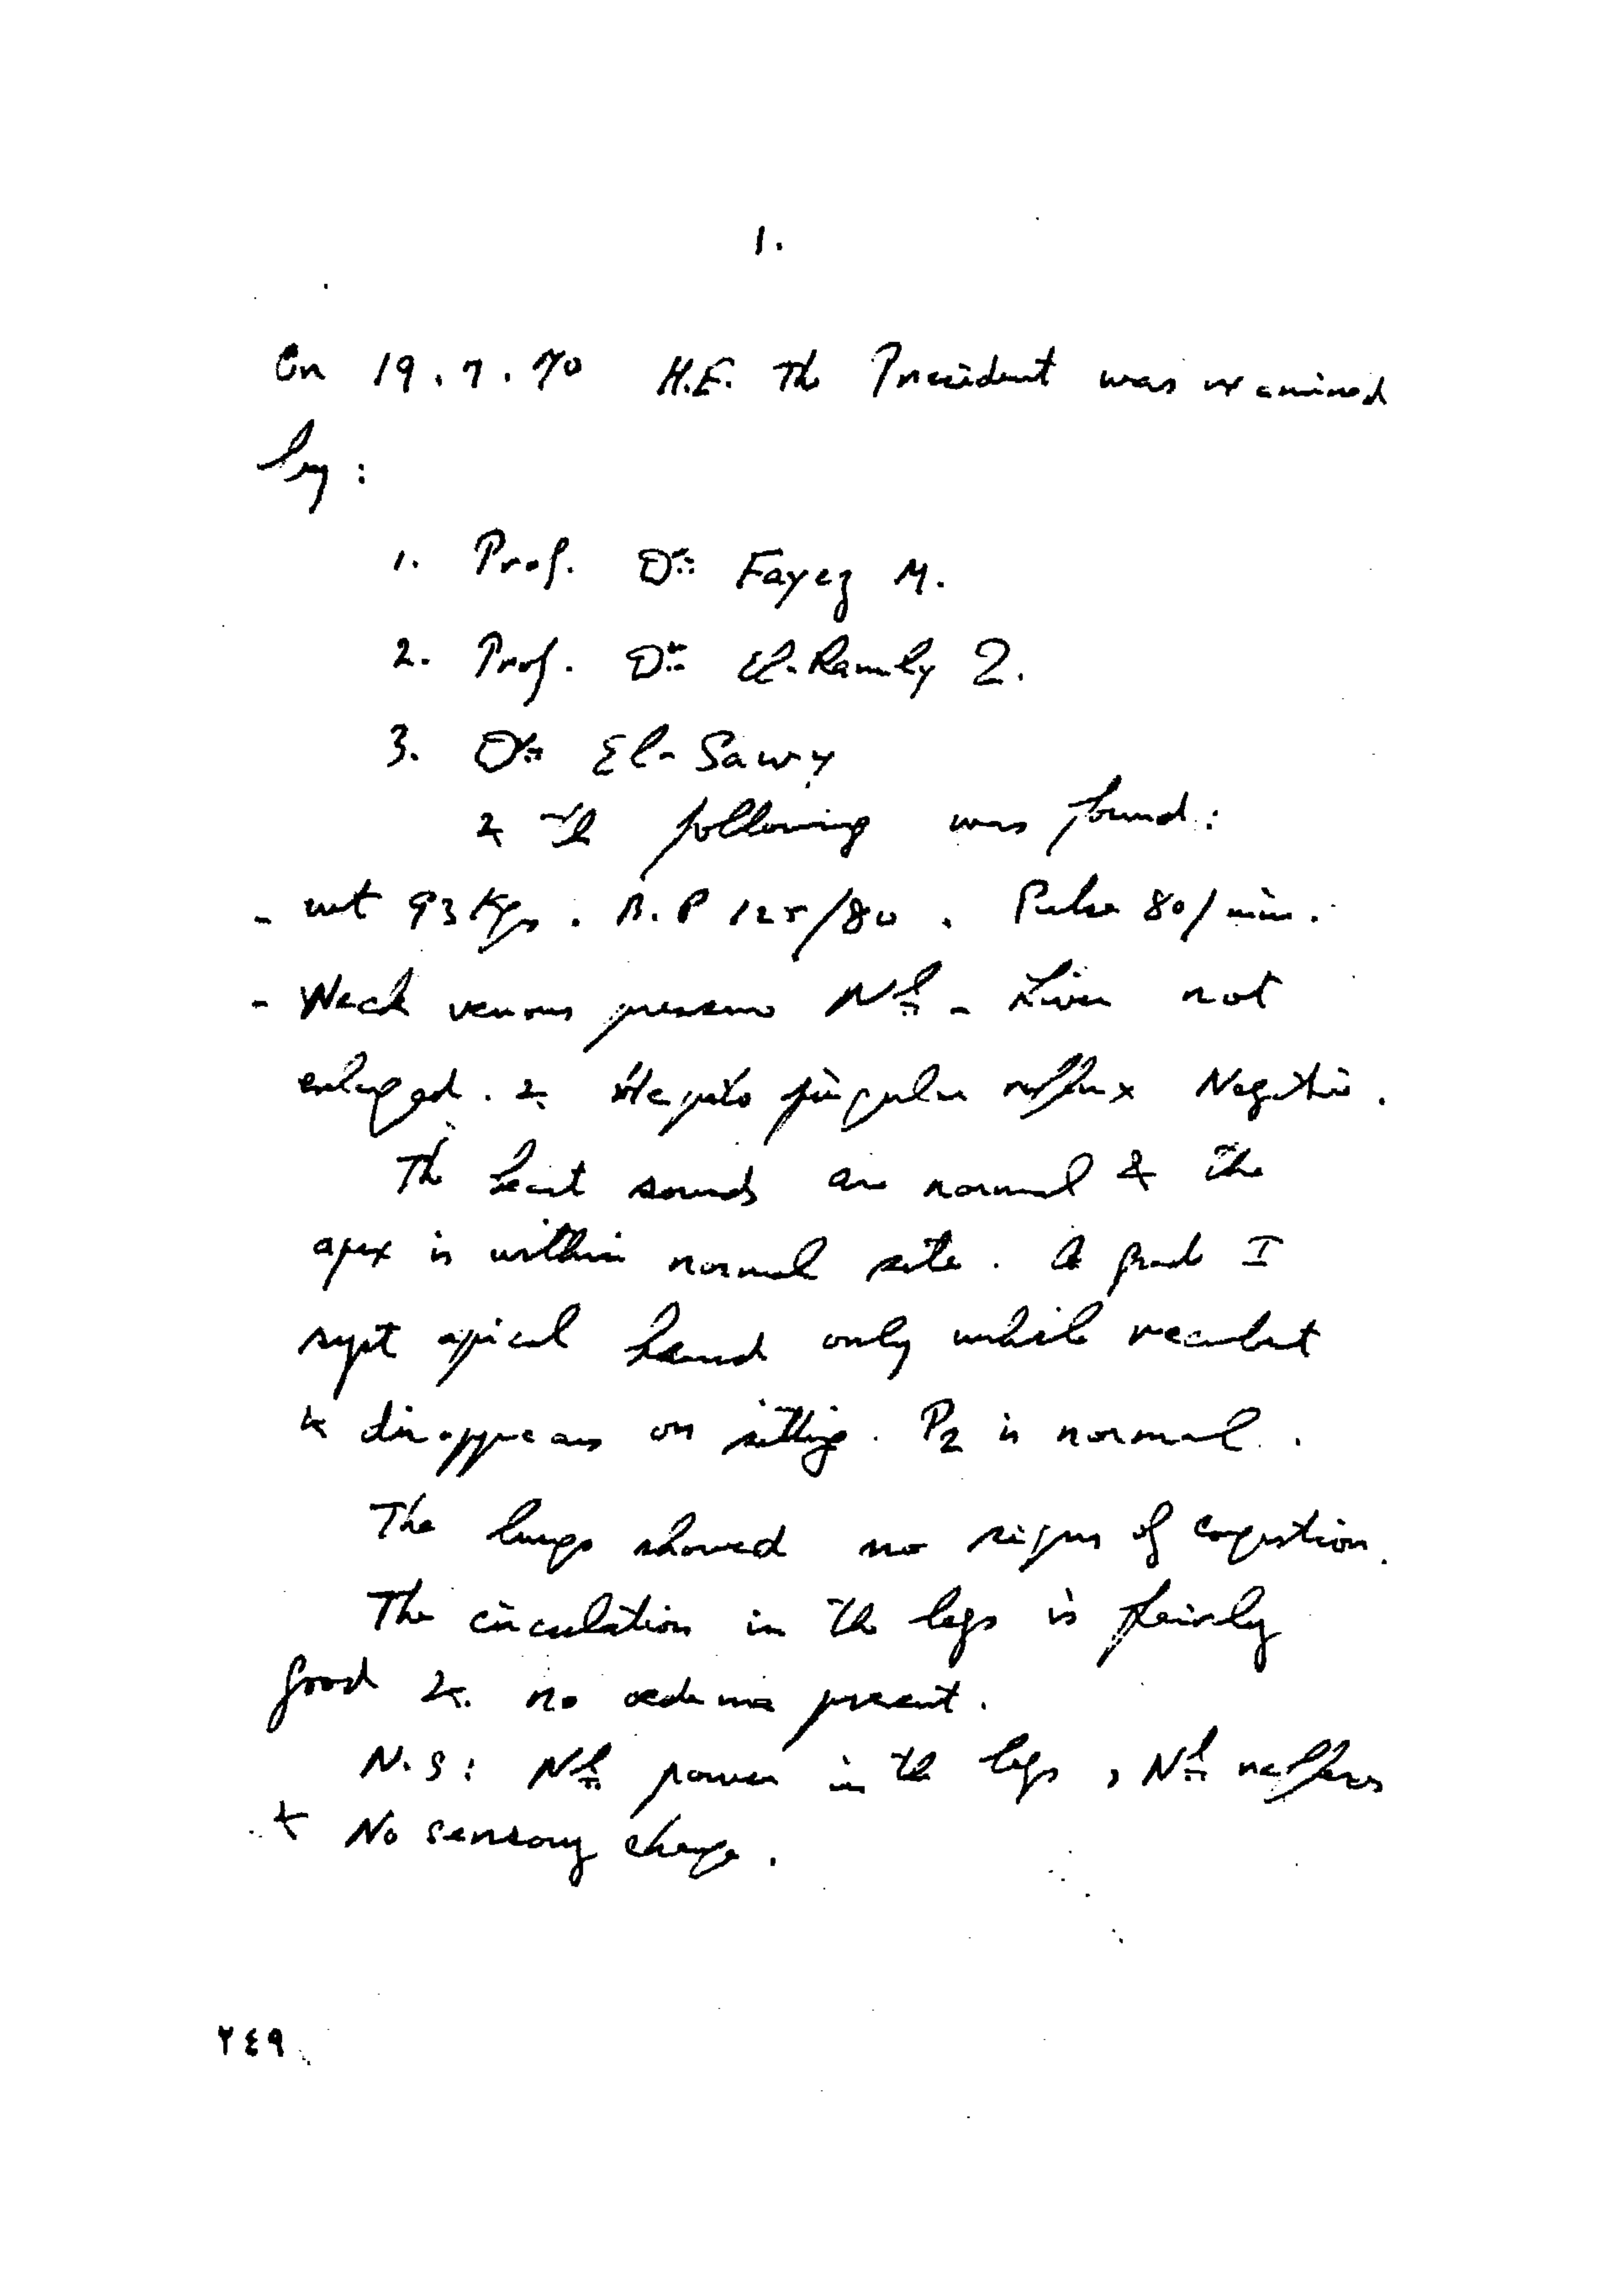 1.
On 19.7.70 H.E. The President was examined
by :
1. Prof. Dr. Fayez M.
2. Prof. Dr. El-Ramly Z.
3. Dr. El-Sawy
& The following was found :
- wt 93 Kgs . B.P 125/80 . Pulse 80/min.
- Neck venous pressure Nl - Liver not
enlarged . & Hepato jugular reflux Negative .
The heart sounds are normal & the
apex is within normal site . A grade I
syst apical heard only while recumbent
& disappears on sitting . P2 is normal .
The lungs showed no signs of congestion .
The circulation in the legs is fairly
good & no oedema present .
N.S : Nl power in the legs , Nl reflexes
& No sensory change .
٢٤٩